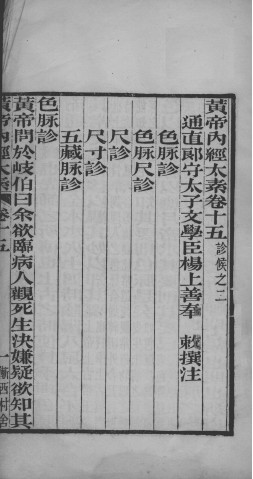 黃帝內經太素卷十五診候之二
通直郎守太子文學臣楊上善奉 敕撰注
色脉診
色脉尺診
尺診
尺寸診
五藏脉診
色脉診
黃帝問於岐伯曰余欲臨病人觀死生決嫌疑欲知其
黃帝內經太素 卷十五 一 漸西村舍